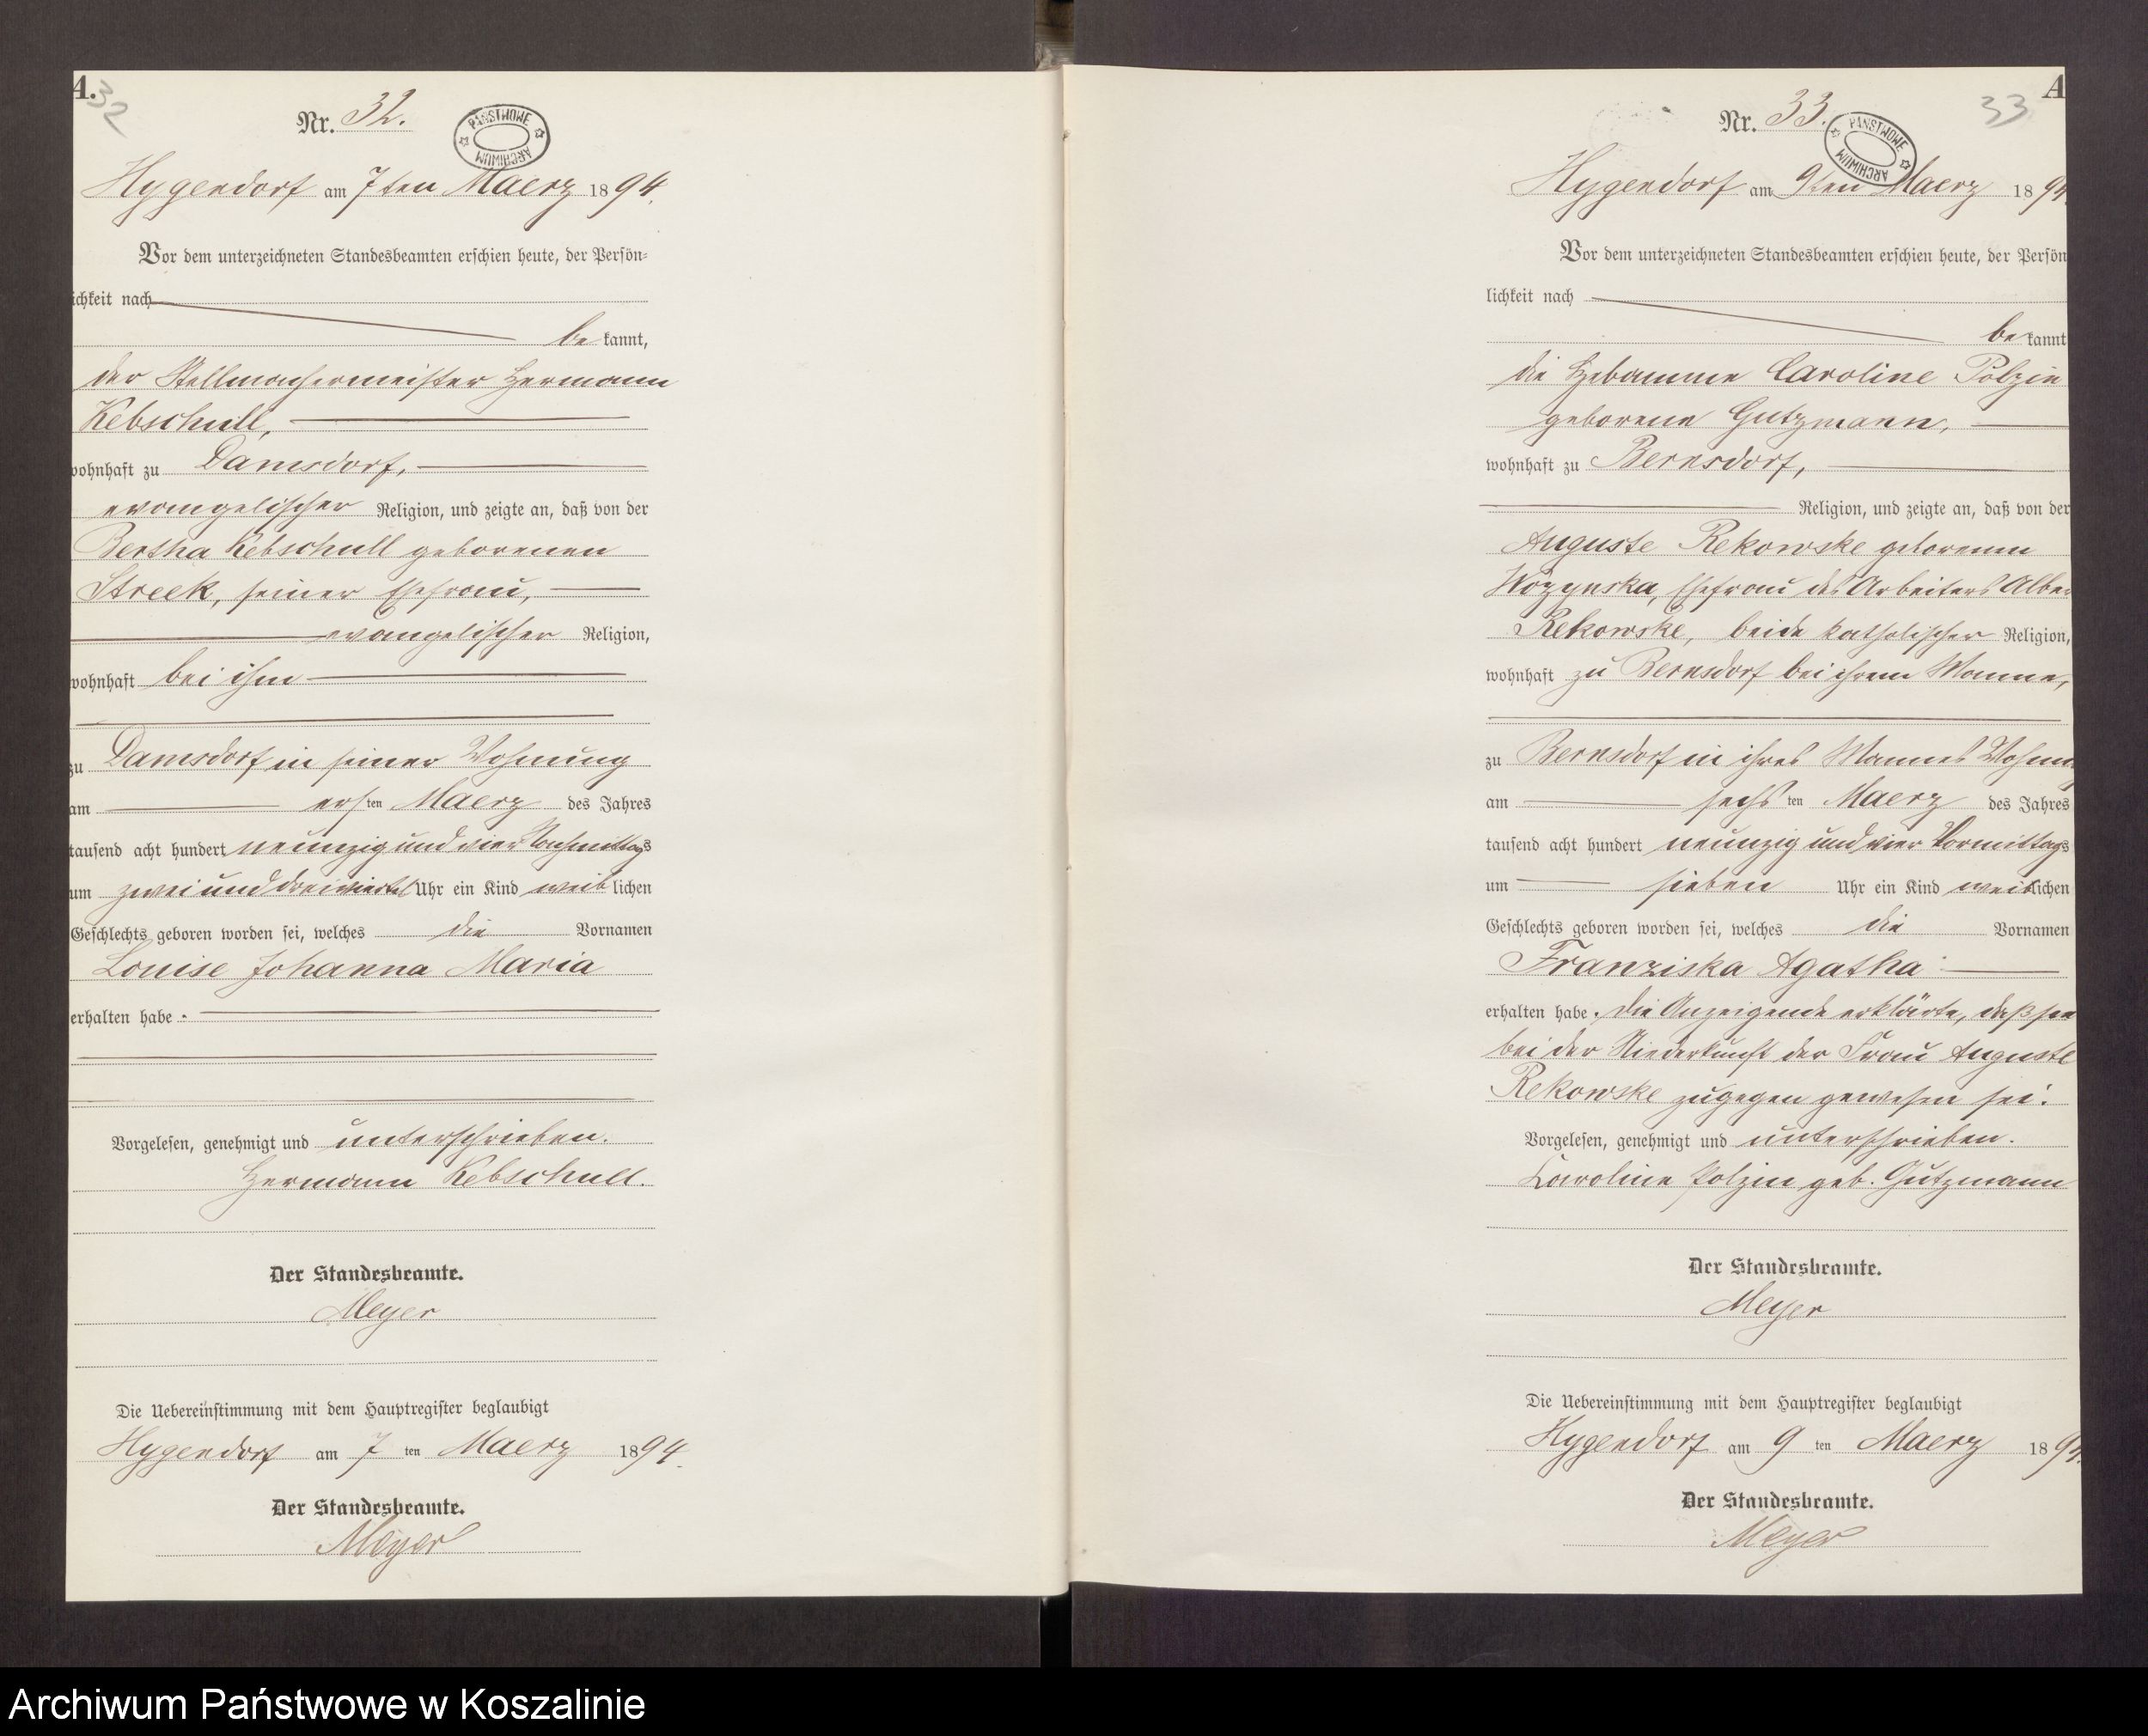 A.
32
Nr. 32.
PAŃSTWOWE ARCHIWUM
Hygendorf am 7ten Maerz 1894.
Vor dem unterzeichneten Standesbeamten erschien heute, der Persön-
ichkeit nach
be kannt,
der Stellmachermeister Hermann
Kebschull,
wohnhaft zu Damsdorf,
evangelischer Religion, und zeigte an, daß von der
Bertha Kebschull geborenen
Streek, seiner Ehefrau,
evangelischer Religion,
wohnhaft bei ihm
zu Damsdorf in seiner Wohnung
am ersten Maerz des Jahres
tausend acht hundert neunzig und vier Nachmittags
um zwei und dreiviertel Uhr ein Kind weiblichen
Geschlechts geboren worden sei, welches die Vornamen
Louise Johanna Maria
erhalten habe.
Vorgelesen, genehmigt und unterschrieben.
Hermann Kebschull.
Der Standesbeamte.
Meyer
Die Uebereinstimmung mit dem Hauptregister beglaubigt
Hygendorf am 7 ten Maerz 1894.
Der Standesbeamte.
Meyer
A
33
Nr. 33.
PAŃSTWOWE ARCHIWUM
Hygendorf am 9ten Maerz 1894
Vor dem unterzeichneten Standesbeamten erschien heute, der Persön
lichkeit nach
be kannt
die Hebamme Caroline Polzin
geborene Gutzmann,
wohnhaft zu Bernsdorf,
Religion, und zeigte an, daß von der
Auguste Rekowske geborenen
Wozynska, Ehefrau des Arbeiters Alber
Rekowske, beide katholischer Religion,
wohnhaft zu Bernsdorf bei ihrem Manne,
zu Bernsdorf in ihres Mannes Wohnung
am sechsten Maerz des Jahres
tausend acht hundert neunzig und vier Vormittags
um sieben Uhr ein Kind weiblichen
Geschlechts geboren worden sei, welches die Vornamen
Franziska Agatha
erhalten habe. Die Anzeigende erklärte, daß sie
bei der Niederkunft der Frau Auguste
Rekowske zugegen gewesen sei.
Vorgelesen, genehmigt und unterschrieben.
Karoline Polzin geb. Gutzmann
Der Standesbeamte.
Meyer
Die Uebereinstimmung mit dem Hauptregister beglaubigt
Hygendorf am 9 ten Maerz 1894.
Der Standesbeamte.
Meyer
Archiwum Państwowe w Koszalinie